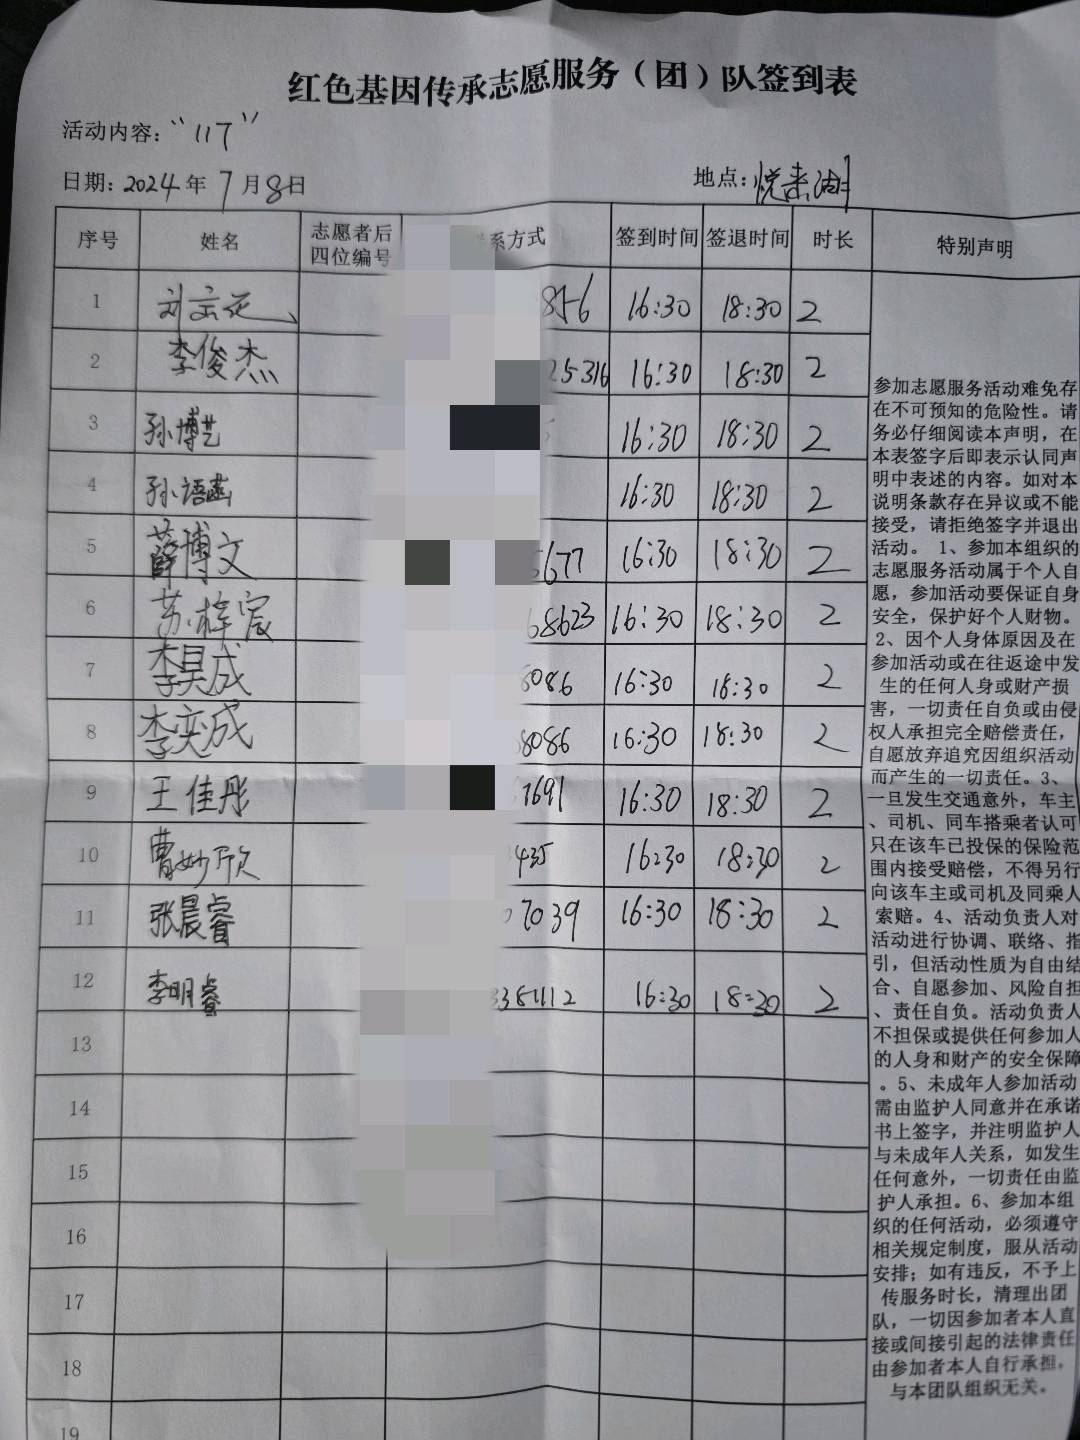 红色基因传承志愿服务（团）队签到表
活动内容：“117”
日期：2024年7月8日 地点：悦来湖
序号 姓名 志愿者后四位编号 系方式 签到时间 签退时间 时长 特别声明
1 刘 856 16:30 18:30 2
2 李俊杰 25316 16:30 18:30 2
3 孙博艺 16:30 18:30 2
4 孙语菡 16:30 18:30 2
5 薛博文 5677 16:30 18:30 2
6 苏梓宸 68623 16:30 18:30 2
7 李昊成 8086 16:30 18:30 2
8 李奕成 88086 16:30 18:30 2
9 王佳彤 7691 16:30 18:30 2
10 曹妙欣 435 16:30 18:30 2
11 张晨睿 07039 16:30 18:30 2
12 李明睿 16:30 18:30 2
13
14
15
16
17
18
19
参加志愿服务活动难免存
在不可预知的危险性。请
务必仔细阅读本声明，在
本表签字后即表示认同声
明中表述的内容。如对本
说明条款存在异议或不能
接受，请拒绝签字并退出
活动。1、参加本组织的
志愿服务活动属于个人自
愿，参加活动要保证自身
安全，保护好个人财物。
2、因个人身体原因及在
参加活动或在往返途中发
生的任何人身或财产损
害，一切责任自负或由侵
权人承担完全赔偿责任，
自愿放弃追究因组织活动
而产生的一切责任。3、
一旦发生交通意外，车主
、司机、同车搭乘者认可
只在该车已投保的保险范
围内接受赔偿，不得另行
向该车主或司机及同乘人
索赔。4、活动负责人对
活动进行协调、联络、指
引，但活动性质为自由结
合、自愿参加、风险自担
、责任自负。活动负责人
不担保或提供任何参加人
的人身和财产的安全保障
。5、未成年人参加活动
需由监护人同意并在承诺
书上签字，并注明监护人
与未成年人关系，如发生
任何意外，一切责任由监
护人承担。6、参加本组
织的任何活动，必须遵守
相关规定制度，服从活动
安排；如有违反，不予上
传服务时长，清理出团
队，一切因参加者本人直
接或间接引起的法律责任
由参加者本人自行承担，
与本团队组织无关。